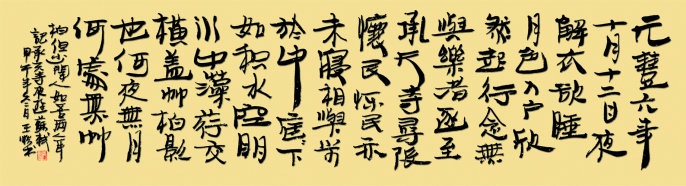 元豐六年
十月十二日夜
解衣欲睡
月色入户欣
然起行念無
與樂者遂至
承天寺尋張
懷民怀民亦
未寢相與步
於中庭〻下
如積水空明
水中藻荇交
橫蓋竹柏影
也何夜無月
何處無竹
柏但少閒人如吾兩人耳
記承天寺夜遊蘇軾
甲午年